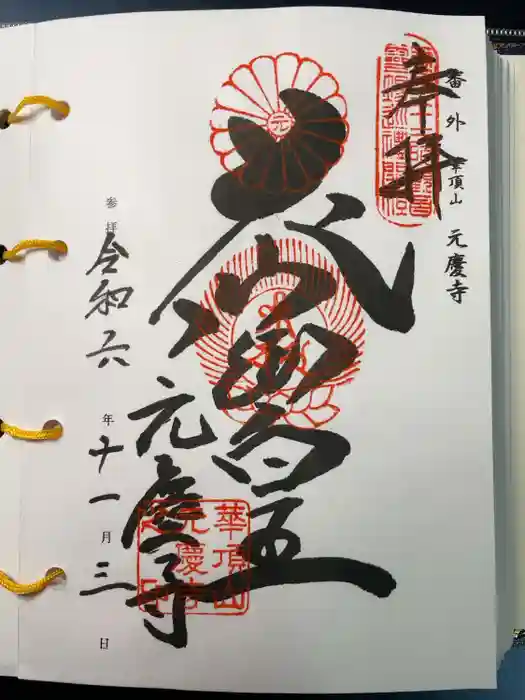 番外 華頂山 元慶寺
奉拝
元
花山法皇
元慶寺
華頂山
元慶寺
参拝 令和六年十一月三日